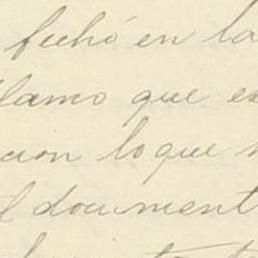 fechó en la
lamo que es
cion lo que
el document